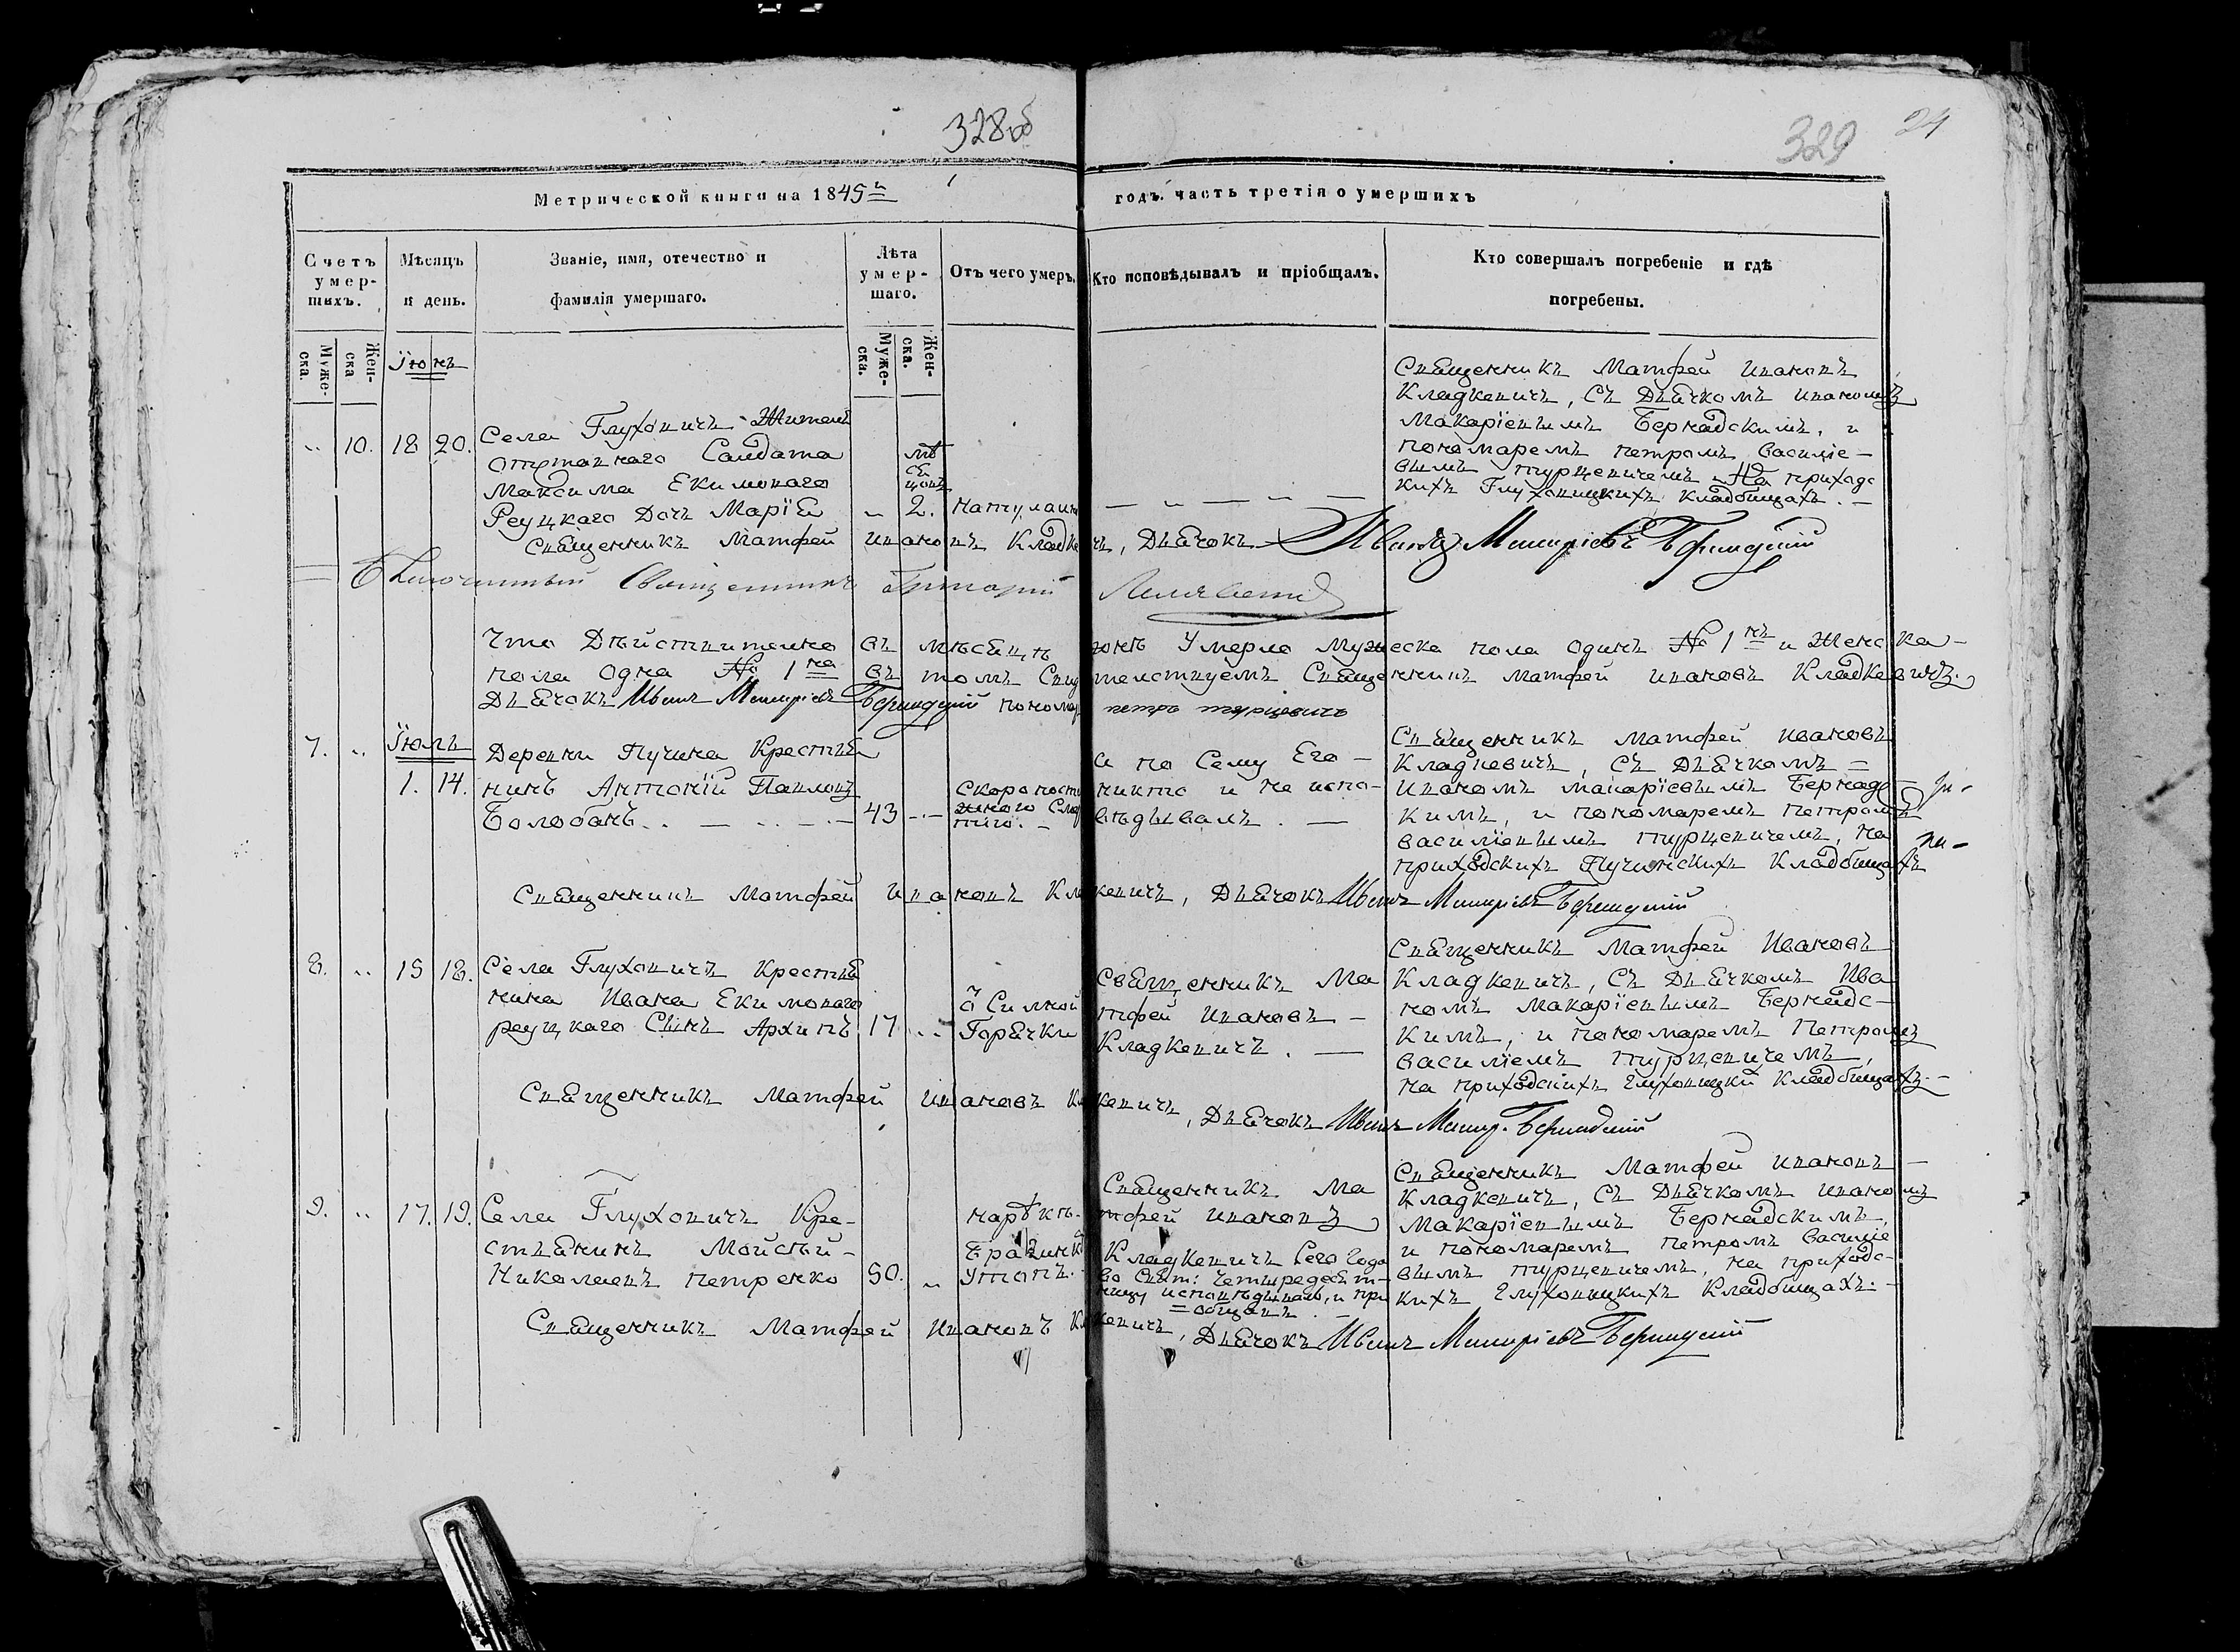 328об
329 24
Метрической книги на 1845й годъ. часть третія о умершихъ
Счетъ умер-шихъ.
Мѣсяцъ и день.
Званіе, имя, отечество и фамилія умершаго.
Лѣта умер-шаго.
Отъ чего умеръ.
Кто исповѣдывалъ и пріобщалъ.
Кто совершалъ погребеніе и гдѣ погребены.
Муже-ска.
Жен-ска
Муже-ска.
Жен-ска.
Іюнь
10. 18 20.
Села Глуховичъ Жителя
Отставнаго Салдата
Максима Екимоваго
Реуцкаго Дочь Марія
мѣ
ся
цовъ
2.
Священникъ Матфей Ивановъ
Кладкевичъ, Съ Дьячкомъ Иваномъ
Макаріевымъ Бернадскимъ, и
пономаремъ петромъ василіе-
вымъ турцевичемъ На приходс
кихъ Глуховицкихъ кладбищахъ. —
Священникъ Матфей Ивановъ Кладкевичъ, Дьячокъ Иванъ Макаріевъ Бернадскій
Благочинный Священникъ Григорій
Что Дѣйствительно въ мѣсяцѣ юнѣ Умерло Мужеска пола одинъ № 1й и Женска-
пола одна № 1на въ томъ Свидетелствуемъ Священникъ Матфей Ивановъ Кладкевичъ.
Дьячокъ Иванъ Макаріевъ Бернадскій пономарь петръ турцевичъ
7.
Іюль
1. 14.
Деревни Пучина Крестья
нинъ Антоній Павловъ
Болобанъ
43
Скоропости
жною Смер
тію. —
а по Сему Его —
никто и не испо-
вѣдывалъ. —
Священникъ Матфей Ивановъ
Кладкевичъ, Съ Дьячкомъ =
Иваномъ Макаріевымъ Бернадс
кимъ, и пономаремъ петромъ
василіевымъ турцевичемъ, на
приходскихъ Пучинскихъ Кладбищахъ
Священникъ Матфей Ивановъ Кладкевичъ, Дьячокъ Иванъ Макаріевъ Бернадскій
8. 15 18.
Села Глуховичъ Крестья
нина Ивана Екимоваго
реуцкаго Сынъ Архипъ
17
Ѿ Силной
Горячки
Священникъ Ма
тфей Ивановъ —
Кладкевичъ. —
Священникъ Матфей Ивановъ
Кладкевичъ, Съ Дьячкомъ Ива
номъ Макаріевымъ Бернадс-
кимъ, и пономаремъ Петромъ
василіемъ турцевичемъ,
на приходскихъ глуховицки Кладбищахъ. —
Священникъ Матфей Ивановъ Кладкевичъ, Дьячокъ Иванъ Макар. Бернадскій
9. 17. 19.
Села Глуховичъ Кре-
стьянинъ Мойсей-
Николаевъ петренко
50.
Утопъ.
Священникъ Ма
тфей Ивановъ
Кладкевичъ Сего Года
во Свят: Четыредесят-
ницу исповѣдывалъ, и прі
=общалъ —
Священникъ Матфей Ивановъ —
Кладкевичъ, Съ Дьячкомъ Иваномъ
Макаріевымъ Бернадскимъ,
и пономаремъ петромъ василіе
вымъ турцевичемъ, на приходс-
кихъ глуховицкихъ Кладбищахъ. —
Священникъ Матфей Ивановъ Кладкевичъ, Дьячокъ Иванъ Макаріевъ Бернадскій